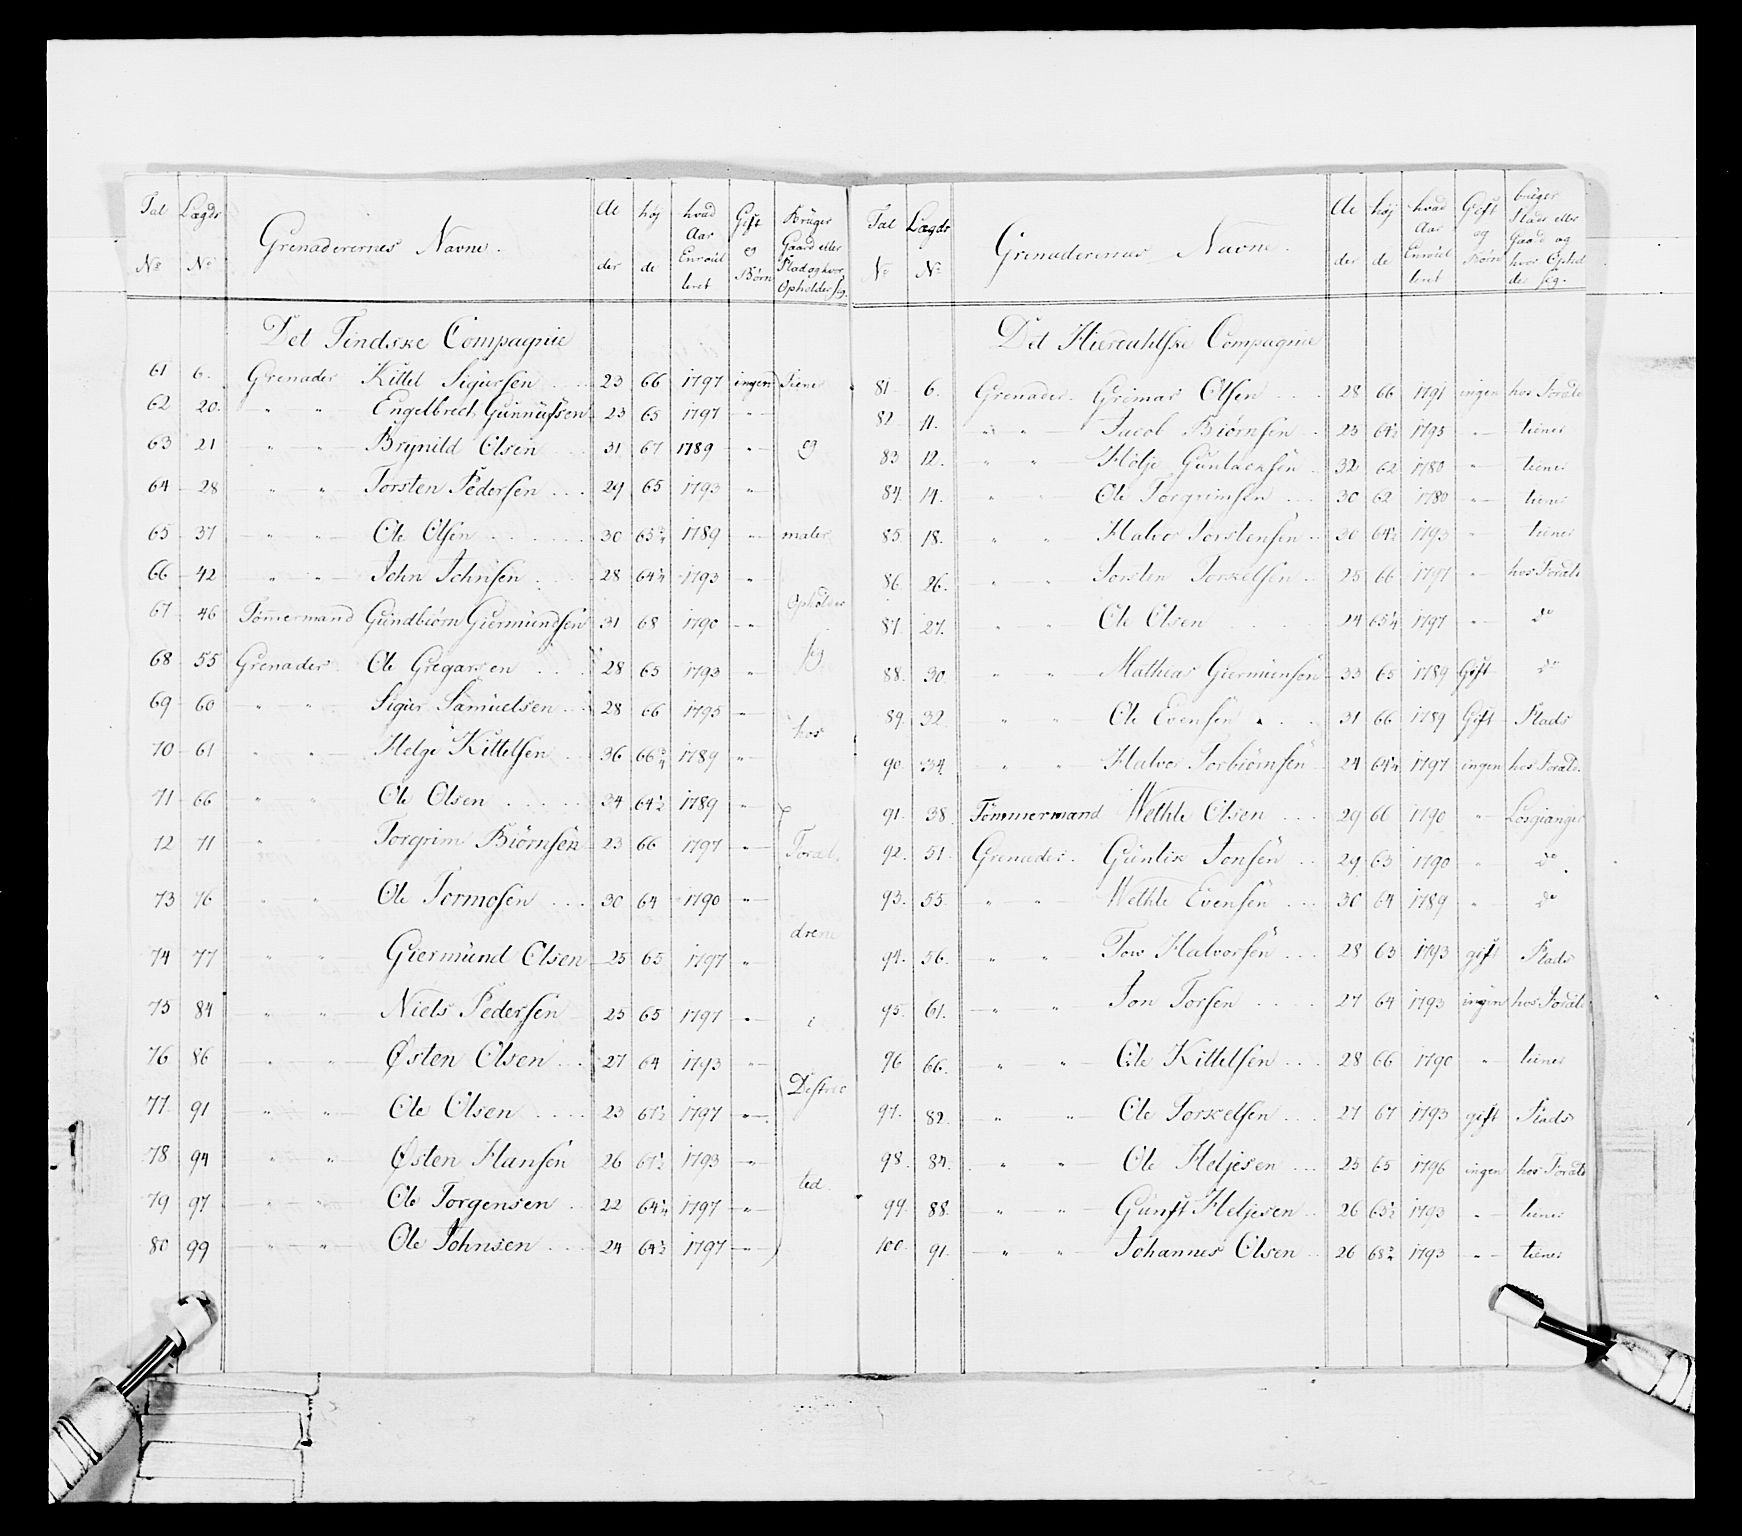 Tal Lægds Grenaderernes Navne. Al høj hvad Gift Bruger
No No der de Aar og Gaard eller
Enroul Børn Plads og hvor
leret Opholder sig.
Det Tindske Compagnie
61 6. Grenader Kittel Sigursen 23 66 1797 ingen Tiener
62 20. " " Engelbrect Gunnufsen 23 65 1797 "
63 21 " " Brynild Olsen 31 67 1789 " og
64 28 " " Torsten Pedersen 29 65 1793 "
65 37 " " Ole Olsen 30 65¾ 1789 " mater
66 42 " " John Johnsen 28 64¼ 1793 "
Opholder
67 46 Tømmermand Gundbiørn Giermundsen 31 68 1790 "
68 55 Grenader Ole Gregarsen 28 65 1793 " sig
69 60 " " Sigur Samuelsen 28 66 1793 "
hos
70 61 " " Helge Kittelsen 36 66¾ 1789 "
71 66 " " Ole Olsen 34 64½ 1789 "
72 71 " " Torgrim Biørnsen 23 66 1797 " Foræl,
73 76 " " Ole Tormosen 30 64 1790 "
drene
74 77 " " Giermund Olsen 25 65 1797 "
75 84 " " Niels Pedersen 25 65 1797 " i
76 86 " " Østen Olsen 27 64 1793 "
Distric
77 91 " " Ole Olsen 23 67½ 1797 "
78 94 " " Østen Hansen 26 67½ 1793 "
ted.
79 97 " " Ole Torgensen 22 64¼ 1797 "
80 99 " " Ole Johnsen 24 64½ 1797 "
Tal Lægds Grenaderernes Navne. Al høj hvad Gift bruger
No No der de Aar og Plads eller
Enroul Børn Gaard og
leret hvor Ophol
der sig.
Det Hierdahlske Compagnie
81 6. Grenader. Grimar Olsen 28 66 1791 ingen hos Foræle
82. 11. " " Jacob Biørnsen 25 64½ 1793 " tiener
83 12. " " Hølje Gunlaensen 32 62 1780 " tiener
84. 14. " " Ole Torgrimsen 30 62 1780 " tiener
85. 18. " " Halvor Torstensen 30 64½ 1793 " tiener
86. 26. " " Torsten Torkelsen 25 66 1797 " hos Foræle
87. 27. " " Ole Olsen 24 65¼ 1797 " do
88. 30. " " Mathias Giermunsen 33 65 1789 Gift do
89. 32. " " Ole Evensen 31 66 1789 Gift Plads
90. 34. " " Halvor Torbiørnsen 24 64¼ 1797 ingen hos Foræle.
91. 38. Tømmermand Wethle Olsen 29 66 1790 " Løsgianger
92. 51. Grenader. Gunlix Jonsen 29 63 1790 " do
93. 55. " " Wethle Evensen 30 64 1789 " do
94. 56. " " Tow Halvorsen 28 63 1793 gift Plads
95. 61. " " Jon Torsen 27 64 1793 ingen hos Foræle
96 66. " " Ole Kittelsen 28 66 1790 " tiener
97. 82. " " Ole Torkelsen 27 67 1793 gift Plads
98. 84. " " Ole Heljesen 25 65 1796 ingen hos Foræle
99. 88. " " Gunst Heljesen 26 65½ 1793 " tiener
100. 91. " " Johannes Olsen 26 68¾ 1793 " tiener